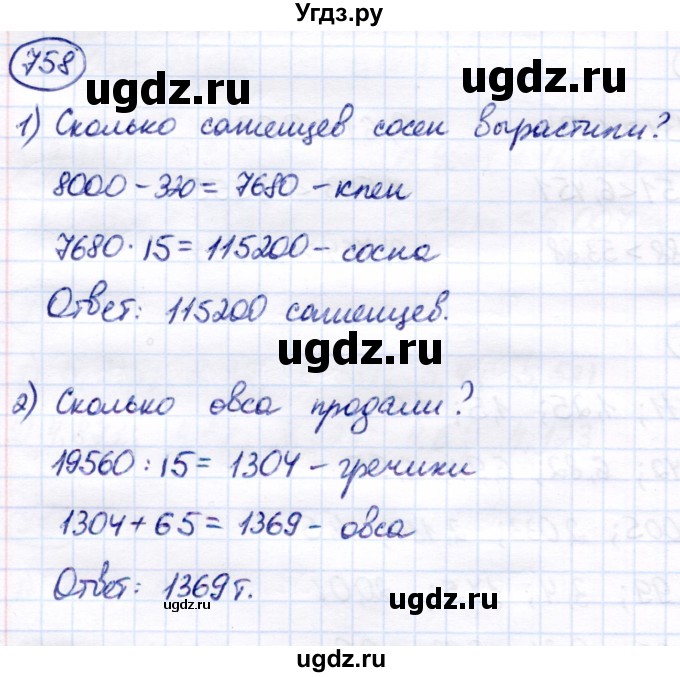 Угдз.ру
758
ugdz.ru
ugdz.ru
1) Сколько саженцев сосен вырастили?
8000 - 320 = 7680 - клен
7680 · 15 = 115200 - сосна
Ответ: 115200 саженцев.
ugdz.ru
2) Сколько овса продали?
ugdz.ru
19560 : 15 = 1304 - гречихи
1304 + 65 = 1369 - овса
Ответ: 1369 т.
ugdz.ru
ugdz.ru
ugdz.ru